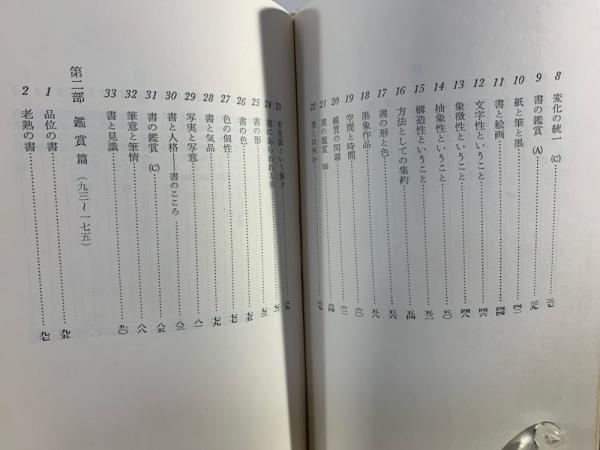 8 変化の統一（C）……三七
9 書の鑑賞（A）……三九
10 紙と筆と墨……四二
11 書と絵画……四四
12 文字性ということ……四六
13 象徴性ということ……四八
14 抽象性ということ……五〇
15 構造性ということ……五一
16 方法としての集約……五四
17 書の形と色……五六
18 墨象作品……五八
19 空間と時間……六〇
20 線質の問題……六二
21 書の鑑賞（B）……六四
22 美とは何か……六七
23
24
25 書の形……七三
26 書の色……七五
27 色の個性……七七
28 書と気品……七九
29 写実と写意……八一
30 書と人格――書のこころ……八三
31 書の鑑賞（C）……八六
32 筆意と筆情……八八
33 書と見識……九〇
第二部 鑑賞篇（九三～一七五）
1 品位の書……九五
2 老熟の書……九七